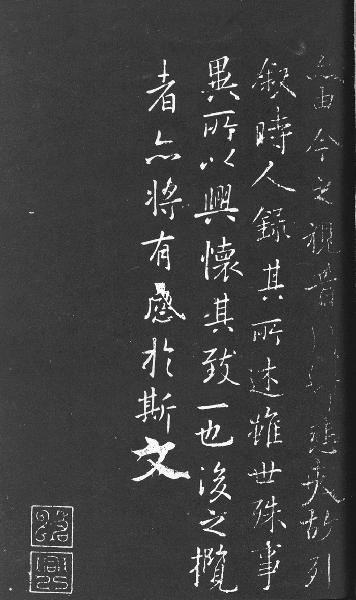 亦由今之視昔悲夫故列
叙時人録其所述雖世殊事
異所以興懷其致一也後之攬
者亦将有感於斯文